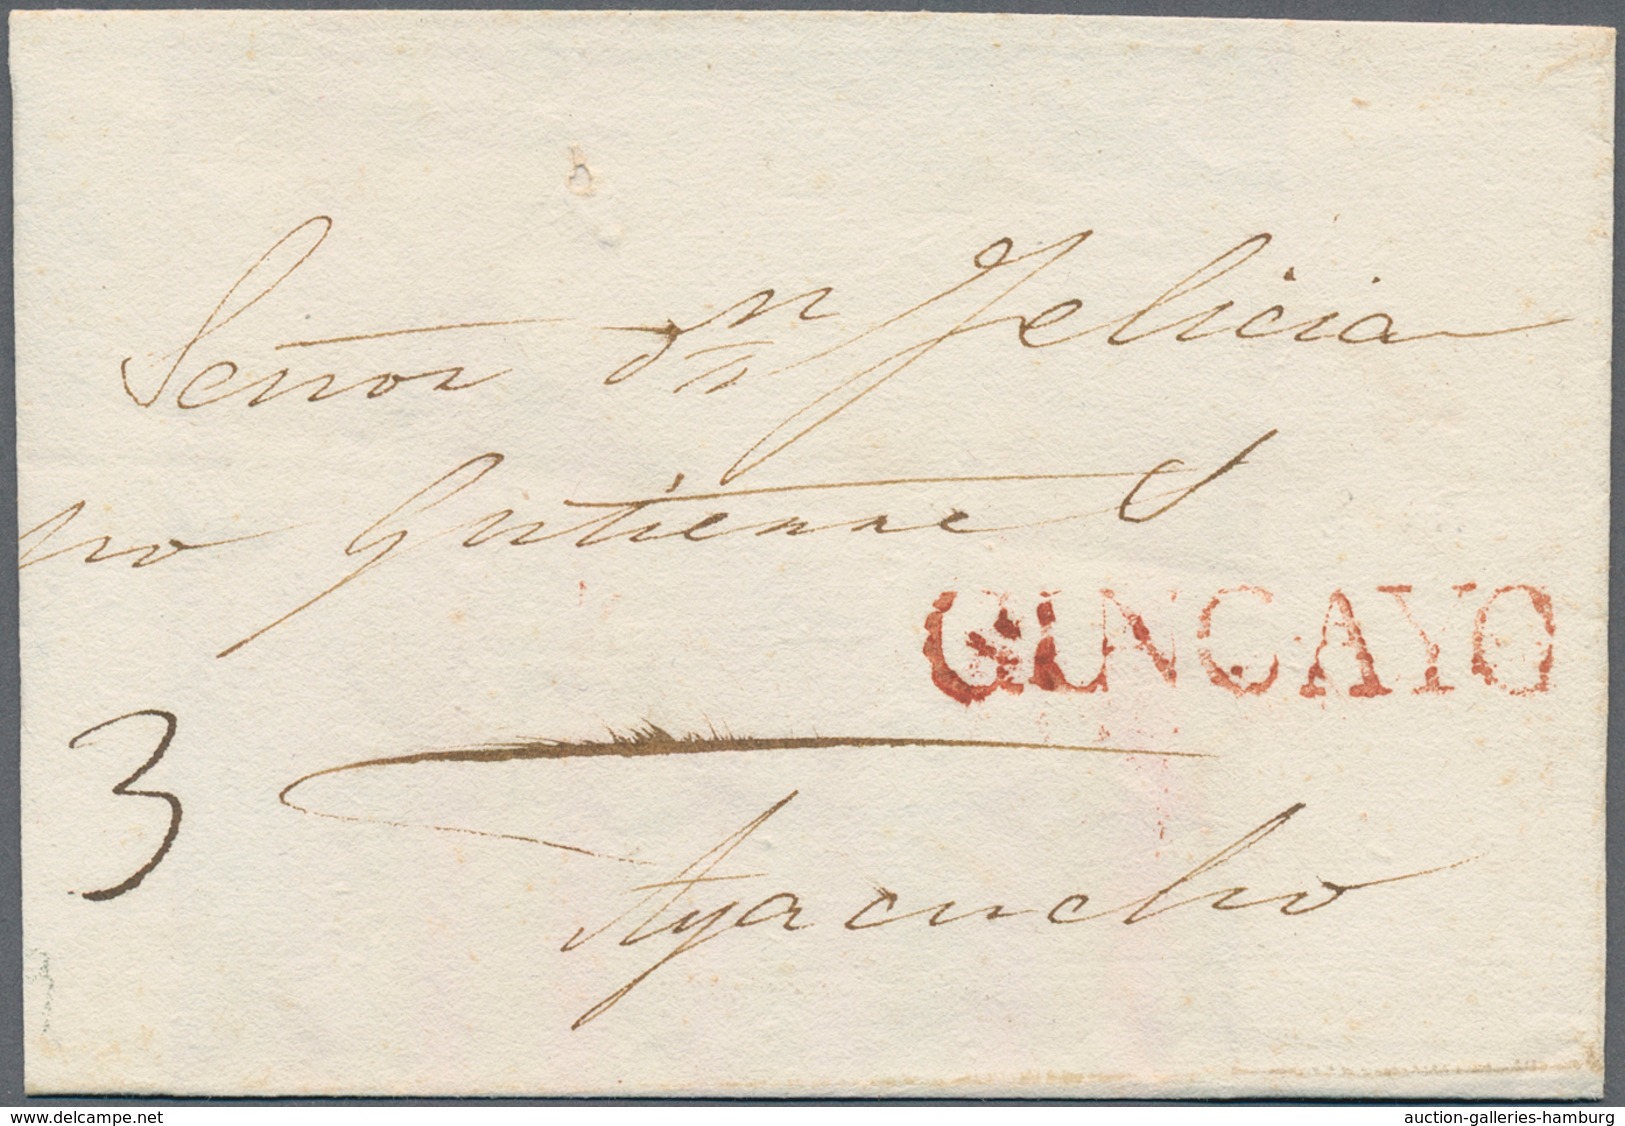 Señor dn Felicia
no Gutierres
GUNCAYO
3
Ayacucho
delcampe.net
auction-galleries-hamburg